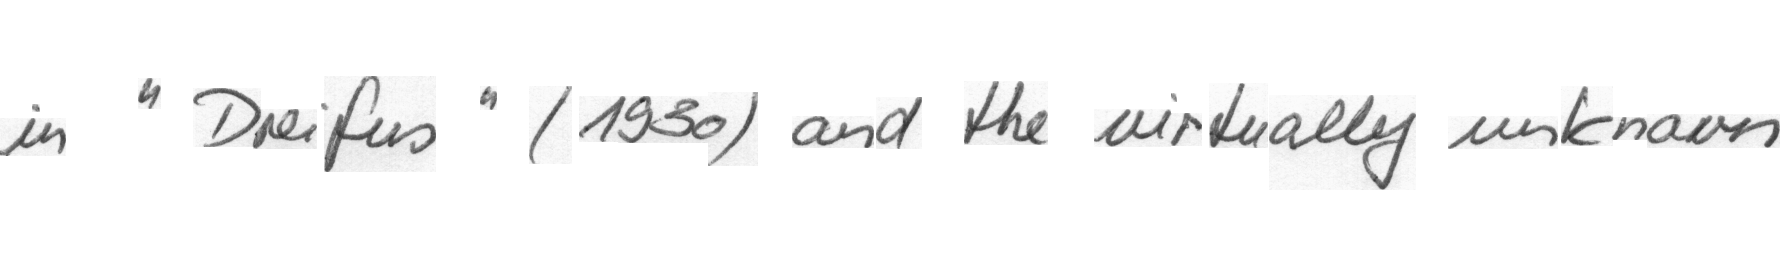 in " Dreifus " (1930) and the virtually unknown